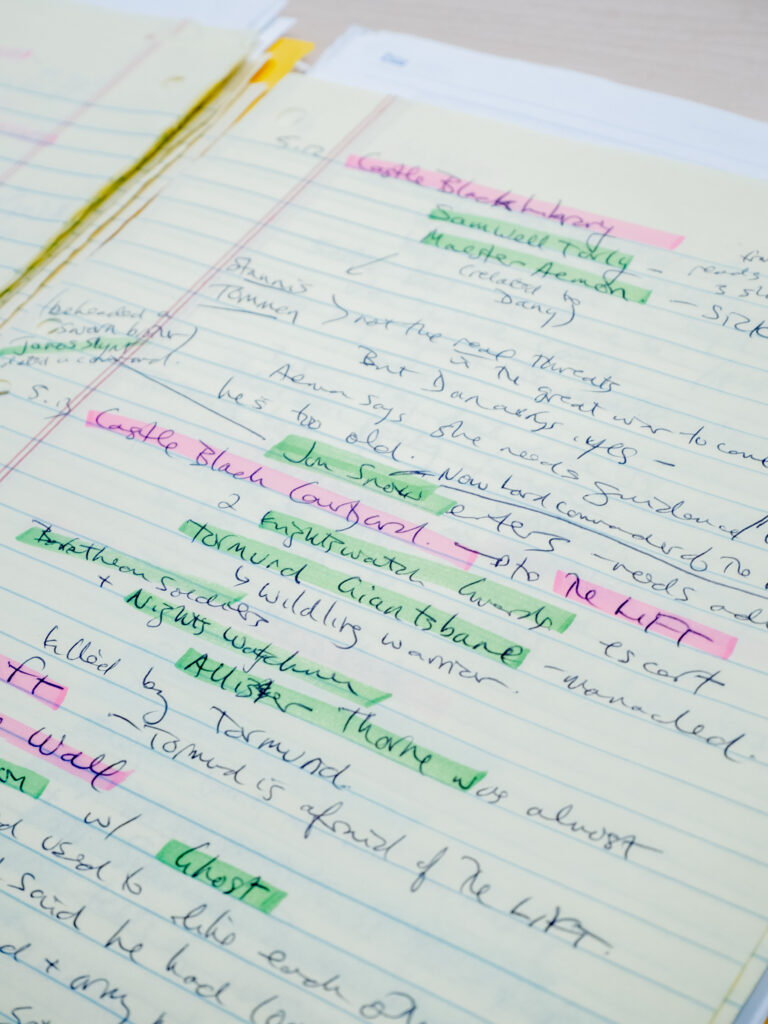 5.12 Castle Black Library
Samwell Tarly – reads
Maester Aemon. – sick
(related to
Dany)
Stannis
Tommen > not the real threats
in the great war to come
But Danaerys yes –
Aemon says she needs guidance
he's too old.
(beheaded a
sworn brother)
Janos Slynt
Jon Snow enters – needs
Now lord commander of the
5.13 Castle Black Courtyard. – to The LIFT
2 Nightswatch Guards escort
Tormund Giantsbane – manacled.
Wildling warrior.
Baratheon Soldiers
+ Nights Watchmen
Allister Thorne was almost
killed by Tormund.
– Tormund is afraid of the LIFT.
Wall
w/ Ghost
used to like each
said he had
+ army